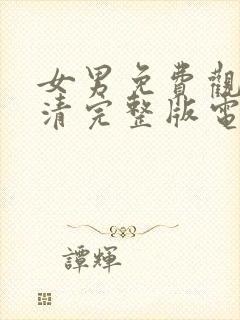 女男免費觀
清完整版電
譚輝